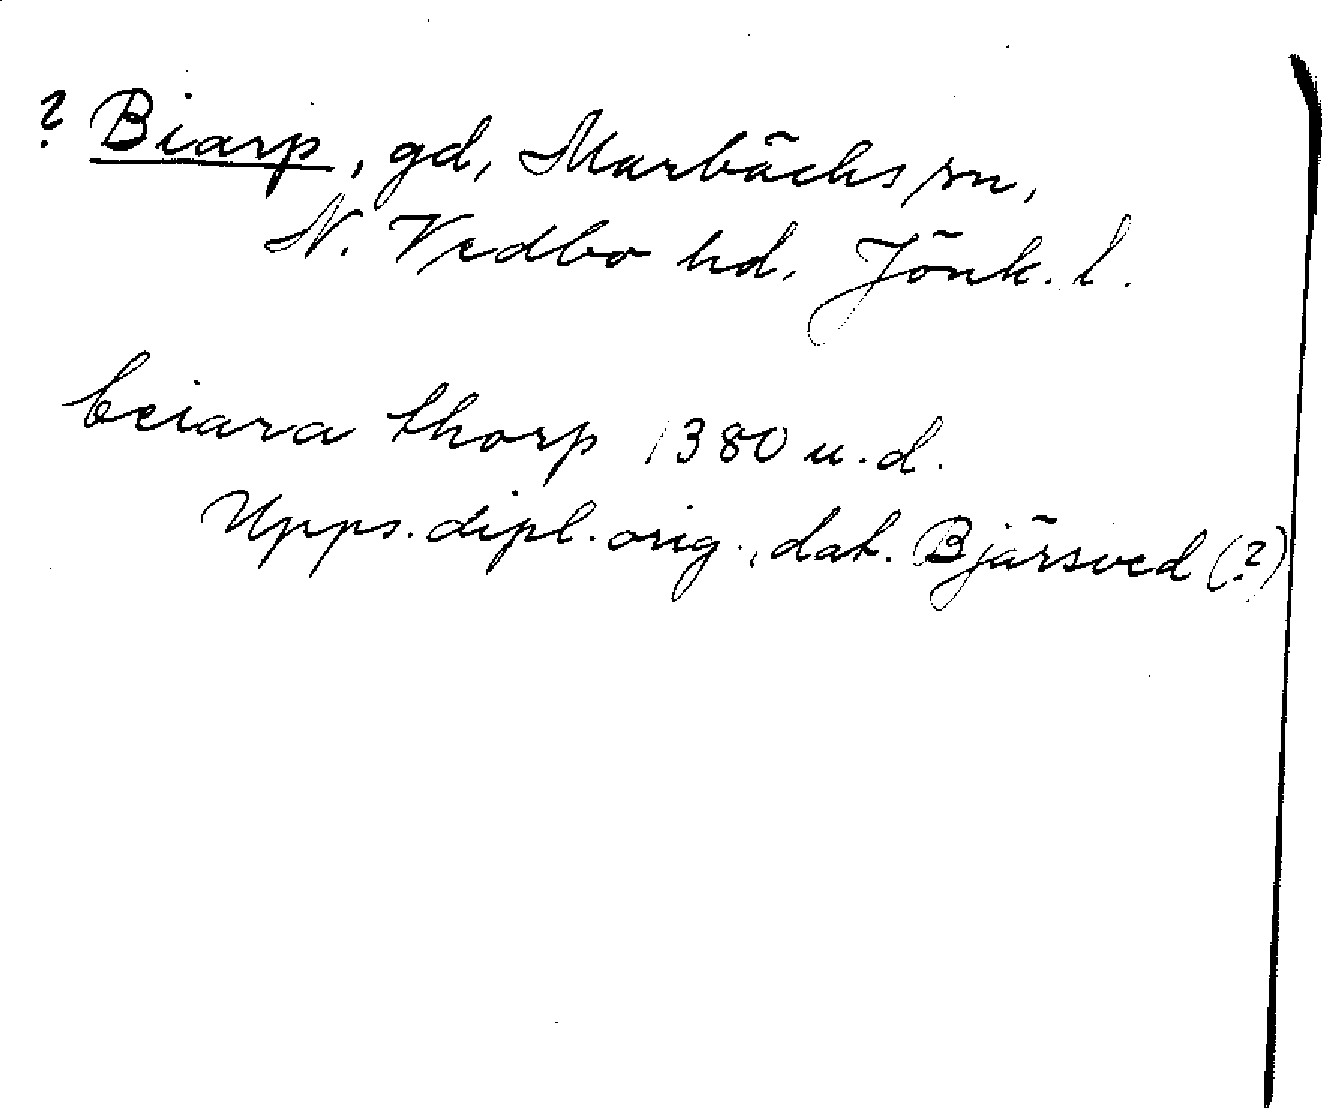 ? Biarp, gd, Marbäcks sn,
N. Vedbo hd. Jönk. l.
beiara thorp 1380 u.d.
Upps. dipl. orig., dat. Bjärsved (?)